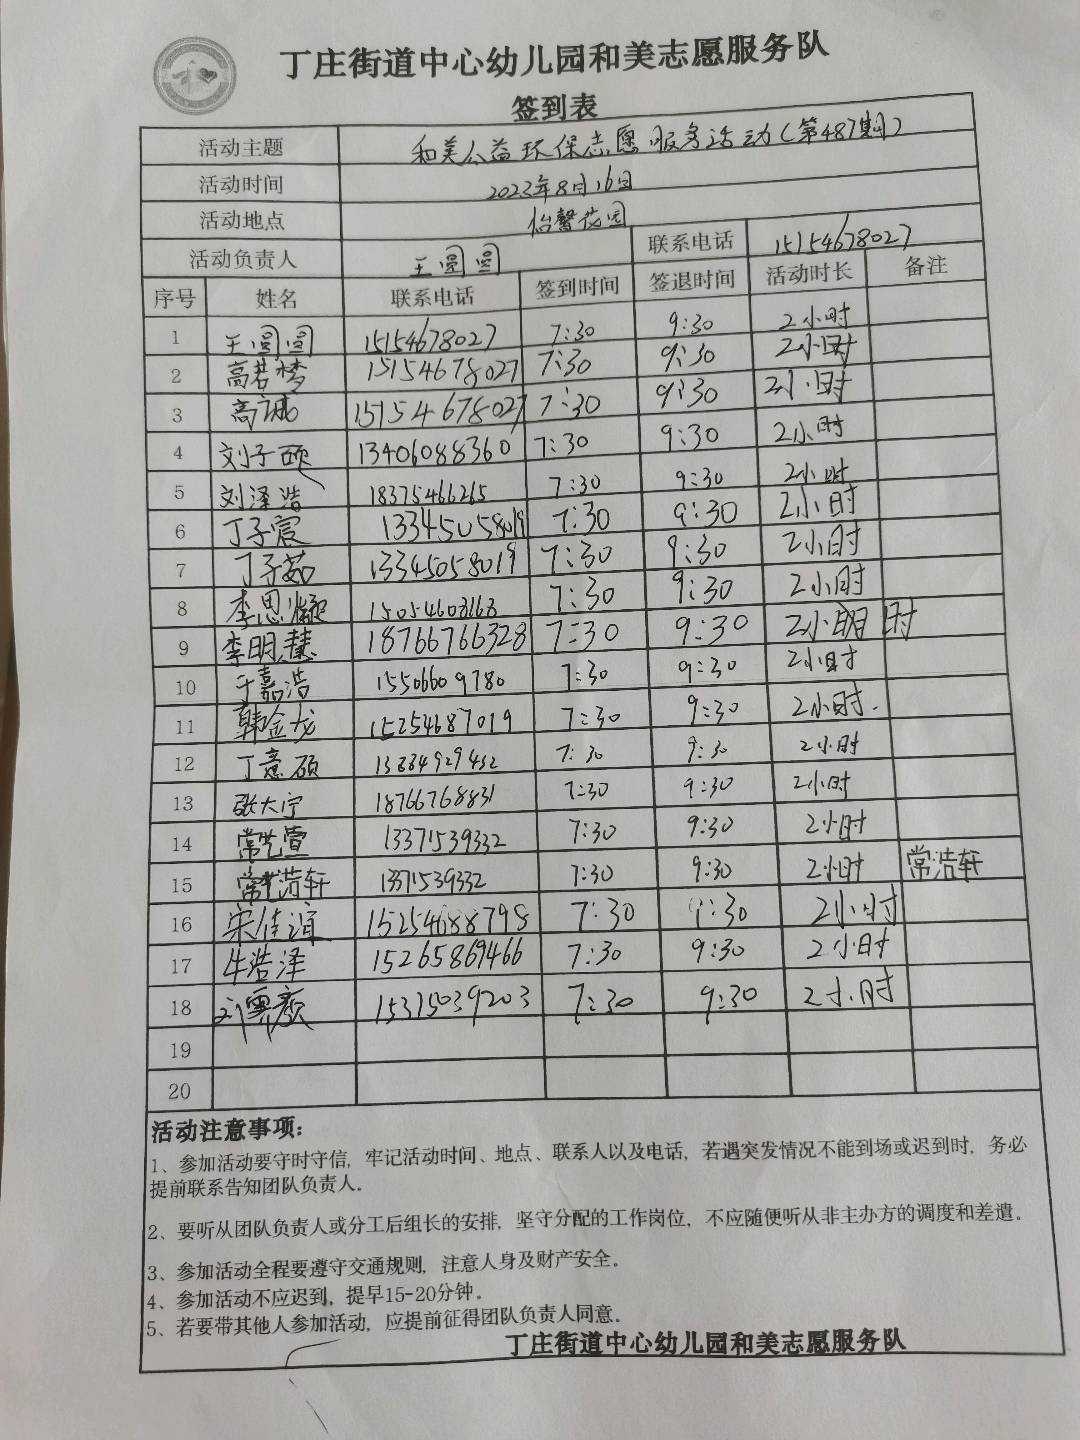 丁庄街道中心幼儿园和美志愿服务队
签到表
活动主题 和美公益环保志愿服务活动(第487期)
活动时间 2023年8月16日
活动地点 怡馨花园
活动负责人 王圆圆 联系电话 15154678027
序号 姓名 联系电话 签到时间 签退时间 活动时长 备注
1 王圆圆 15154678027 7:30 9:30 2小时
2 高若梦 15154678027 7:30 9:30 2小时
3 高诚 15154678027 7:30 9:30 2小时
4 刘子硕 13406088360 7:30 9:30 2小时
5 刘泽浩 18375466265 7:30 9:30 2小时
6 丁子宸 13345058019 7:30 9:30 2小时
7 丁子茹 13345058019 7:30 9:30 2小时
8 李思凝 15054608168 7:30 9:30 2小时
9 李明慧 18766766328 7:30 9:30 2小时
10 于嘉浩 15506609780 7:30 9:30 2小时
11 韩金龙 15254687019 7:30 9:30 2小时.
12 丁意硕 7:30 9:30 2小时
13 张大宁 18766768831 7:30 9:30 2小时
14 常艺萱 13371539332 7:30 9:30 2小时
15 常浩轩 13371539332 7:30 9:30 2小时 常浩轩
16 宋佳谊 15254688798 7:30 9:30 2小时
17 牛浩泽 15265869466 7:30 9:30 2小时
18 15315039203 7:30 9:30 2小时
19
20
活动注意事项:
1、参加活动要守时守信,牢记活动时间、地点、联系人以及电话,若遇突发情况不能到场或迟到时,务必
提前联系告知团队负责人。
2、要听从团队负责人或分工后组长的安排,坚守分配的工作岗位,不应随便听从非主办方的调度和差遣。
3、参加活动全程要遵守交通规则,注意人身及财产安全。
4、参加活动不应迟到,提早15-20分钟。
5、若要带其他人参加活动,应提前征得团队负责人同意。
丁庄街道中心幼儿园和美志愿服务队